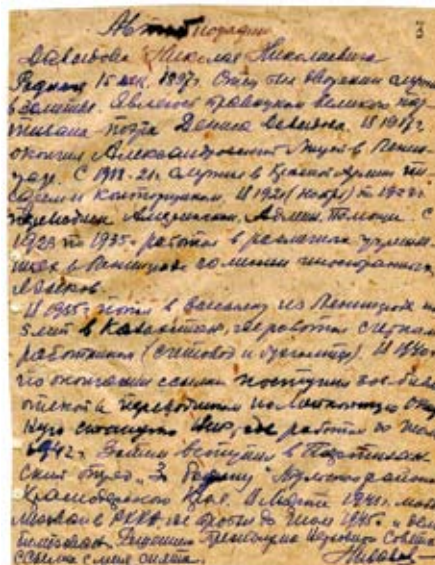 3
Автобиография
Давыдова Николая Николаевича
Родился 15 дек. 1897г. Отец был дворянин служил
в земстве. Являюсь правнуком великого пар-
тизана поэта Дениса Давыдова. В 1917г.
окончил Александровский Лицей в Ленин-
граде. С 1918-21г. служил в Красной Армии пи-
сарем и конторщиком. В 1921 (ноябрь) по 1922г.
Американск. Админ. Помощи. С
1923 по 1935г. работал в различных учрежде-
ниях в Ленинграде по линии иностранных
языков.
В 1935г. попал в высылку из Ленинграда на
5 лет в Казахстан, где работал счетным
работником (счетовод и бухгалтер). В 1940г.
по окончании ссылки поступил
и переводчиком
где работал до
1942г. Затем вступил в Партизан-
ский отряд "За Родину" района
Краснодарского Края. В Марте 1943г. моби-
лизован в РККА где пробыл до Июля 1945г. и демо-
билизован. Решением Президиума Верховного Совета
ссылка с меня снята.